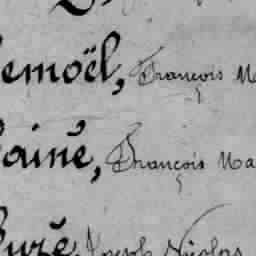 emoël, François M
ainé, François Ma
uzé, Joseph Nicolas